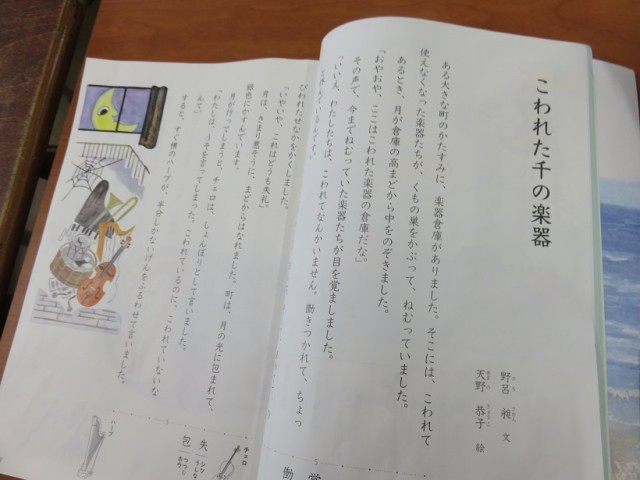 こわれた千の楽器
野呂 昶 文
天野 恭子 絵
ある大きな町のかたすみに、楽器倉庫がありました。そこには、こわれて
使えなくなった楽器たちが、くもの巣をかぶって、ねむっていました。
あるとき、月が倉庫の高まどから中をのぞきました。
「おやおや、ここはこわれた楽器の倉庫だな。」
その声で、今までねむっていた楽器たちが目を覚ましました。
「いいえ、わたしたちは、こわれてなんかいません。働きつかれて、ちょっ
と休んでいるんです。」
びわれたせなかをかくしました。
「いやいや、これはどうも失礼。」
月は、きまり悪そうに、まどからはなれました。町は、月の光に包まれて、
銀色にかすんでいます。
月が行ってしまうと、チェロは、しょんぼりとして言いました。
「わたしは、うそを言ってしまった。こわれているのに、こわれていないな
んて。」
すると、すぐ横のハープが、半分しかないげんをふるわせて言いました。
働
チェロ
失 シツ うしなう
包 つつむ ホウ
ハープ